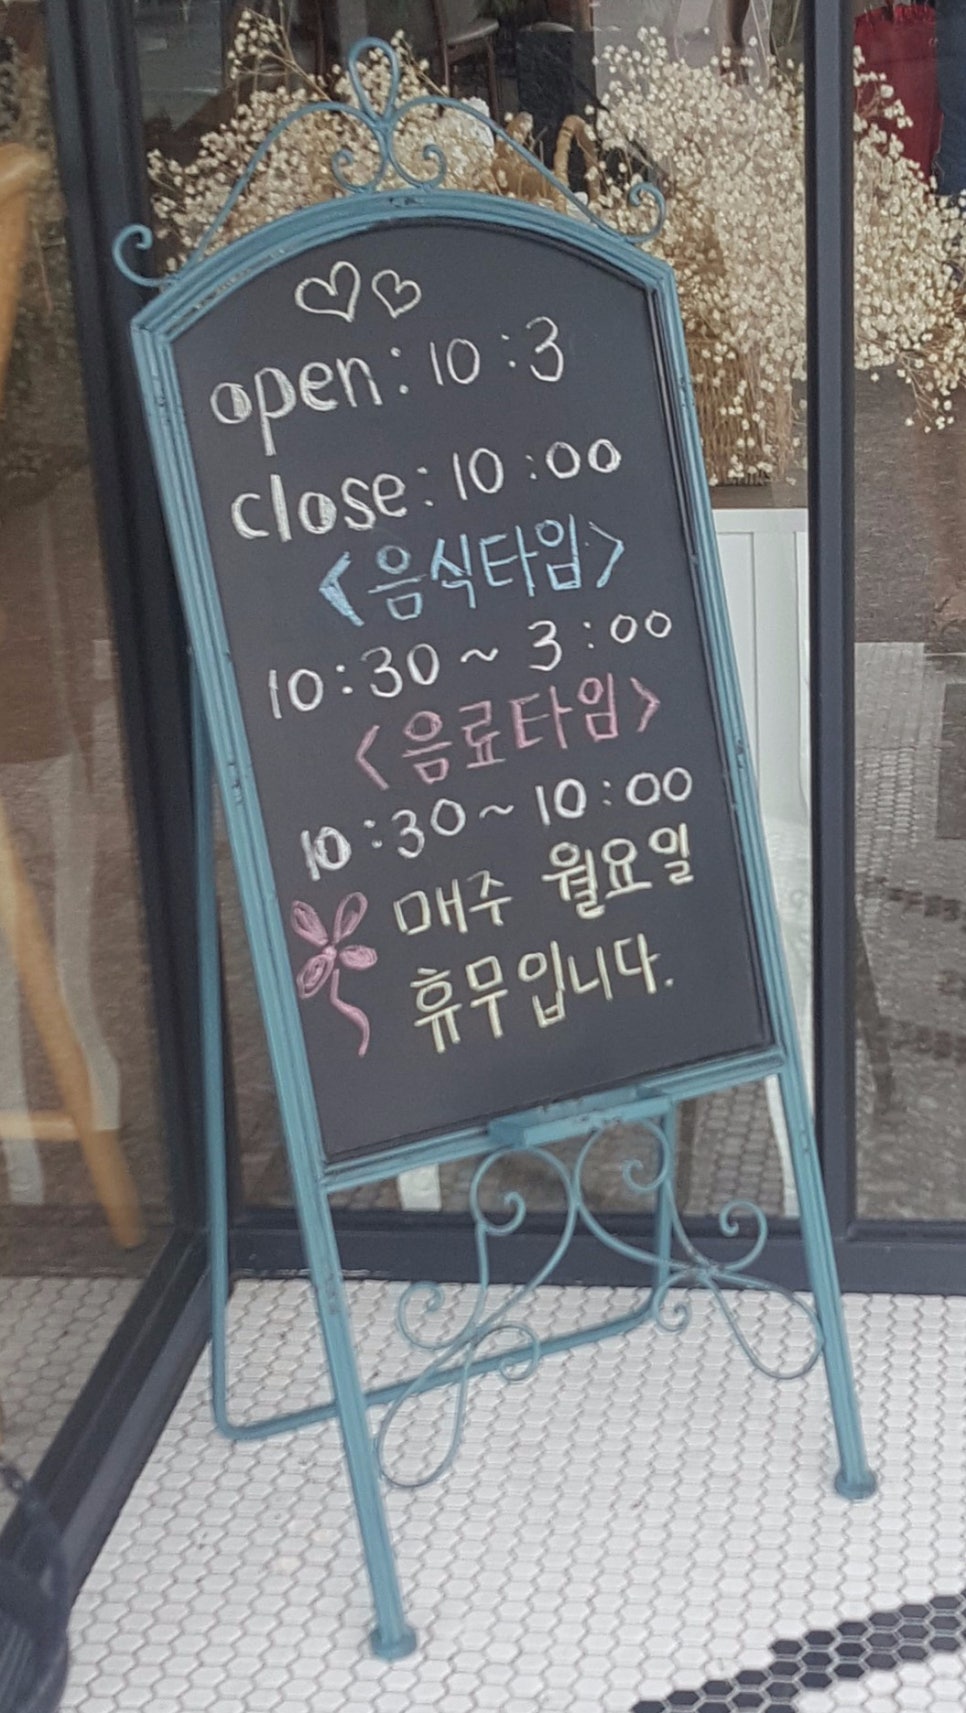 open : 10 : 3
close : 10 : 00
<음식타임>
10 : 30 ~ 3 : 00
<음료타임>
10 : 30 ~ 10 : 00
매주 월요일
휴무입니다.